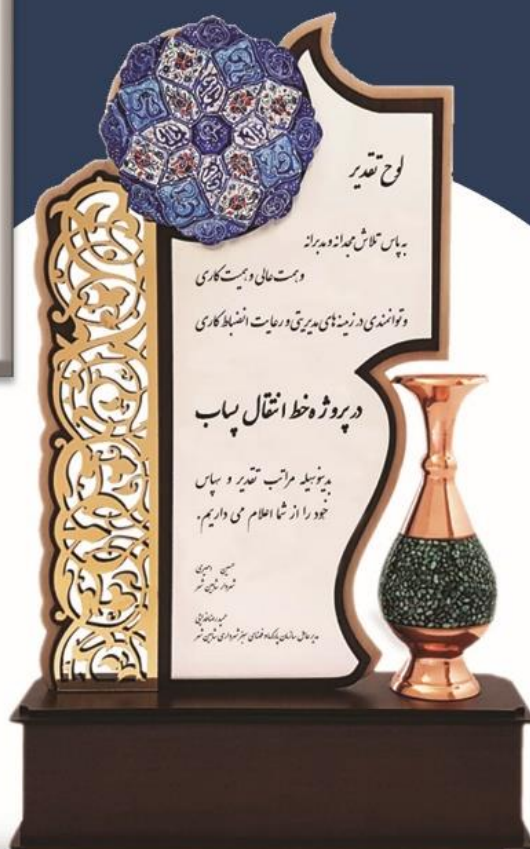 لوح تقدیر
به پاس تلاش مجدانه و مدبرانه
و همت عالی و همیت کاری
و توانمندی در زمینه های مدیریتی و رعایت انضباط کاری
در پروژه خط انتقال پساب
بدینوسیله مراتب تقدیر و سپاس
خود را از شما اعلام می داریم.
حسین امیری
شهردار شاهین شهر
حمیدرضا فدایی
مدیرعامل سازمان پارکها و فضای سبز شهرداری شاهین شهر